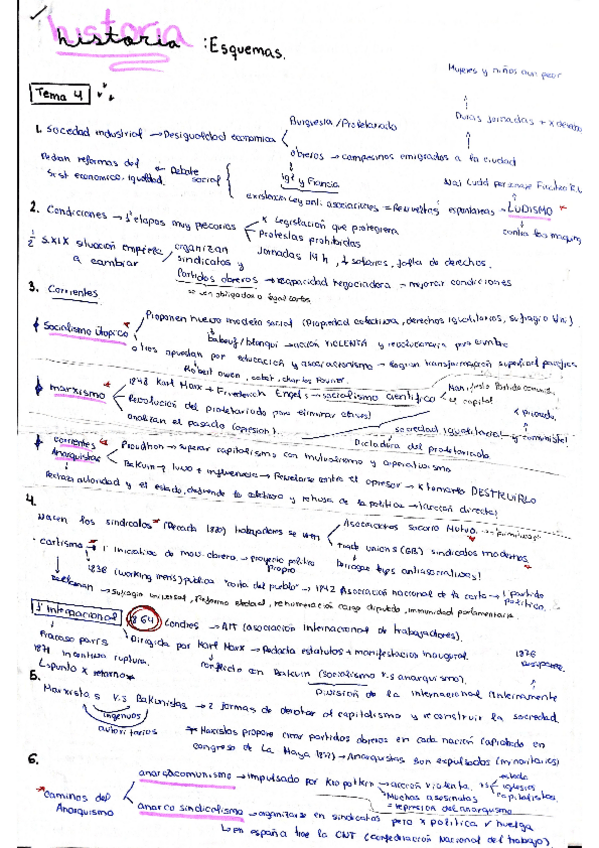 historia : Esquemas.
Mujeres y niños aun peor
Tema 4
Burguesia / Proletariado
Duras Jornadas + x dinero
1. Sociedad industrial → Desigualdad economica
obreros → campesinos emigrados a la ciudad
Pedian reformas del ← Debate social
Sist economico, igualdad.
Igl y Francia
Ned Ludd personaje
existencia Ley anti. asociaciones = Revueltas espontaneas = LUDISMO
contra las maquinas
2. Condiciones → 1ª etapas muy precarias
x Legislación que protegiera
Protestas prohibidas
Jornadas 14 h, ↓ salarios, falta de derechos.
½ S.XIX situación empieza a cambiar
organizan sindicatos y Partidos obreros → capacidad negociadora → mejorar condiciones
se ven obligados a
3. Corrientes
Socialismo Utopico
Proponen nuevo modelo social (Propiedad colectiva, derechos igualitarios, sufragio Uni.)
Babeuf / Blanqui → acción VIOLENTA y revolucionaria
otros apuestan por educación y asociacionismo → logran transformación
Robert Owen, cabet, charles Fourier.
marxismo
1848 Karl Marx + Friederich Engels → socialismo cientifico
Manifiesto Partido comunis.
el capital
Revolución del proletariado para eliminar clases!
analizan el pasado (opresion).
sociedad igualitaria y comunista!
Dictadura del proletariado
corrientes Anarquistas
Proudhon → superar capitalismo con mutualismo y cooperativismo
Bakunin → tuvo + influencia → Revelarse contra el opresor → x tomarlo DESTRUIRLO
Rechaza autoridad y el estado, defiende lo colectivo y rehusa de la politica → (acción directa)
4.
Nacen los sindicatos (Decada 1820) trabajadores se unen
Asociaciones Socorro Mutuo
Trade unions (GB) sindicatos modernos
Derrogar leyes antiasociativas!
cartismo → 1ª iniciativa de mov. obrero → proyecto politico propio
1838 (working mens) publica "carta del pueblo" → 1842 Asociación nacional de la carta → 1 partido politico.
Reclaman → Sufragio universal, Reforma electoral, remuneración cargo diputado, inmunidad parlamentaria
1ª Internacional 1864 Londres → AIT (asociación Internacional de trabajadores).
Dirigida por Karl Marx → Redacta estatutos + manifestacion inaugural.
Fracaso paris 1871 incentiva ruptura.
↳ punto x retorno
conflicto con Bakunin (socialismo v.s anarquismo).
1876
División de la internacional (Internamente
5.
Marxistas v.s Bakunistas → 2 formas de derrotar al capitalismo y reconstruir la sociedad
ingenuos
autoritarios
* Marxistas propone crear partidos obreros en cada nación (aprobado en congreso de La Haya 1872) → Anarquistas son expulsados (minoritarios)
6.
caminos del Anarquismo
anarcocomunismo → impulsado por Kropotkin → acción violenta. vs estado iglesias capitalistas.
Muchos asesinatos = represion del anarquismo
anarco sindicalismo → organizarse en sindicatos pero x politica ✓ huelga
↳ en españa trae la CNT (confederación Nacional del trabajo).